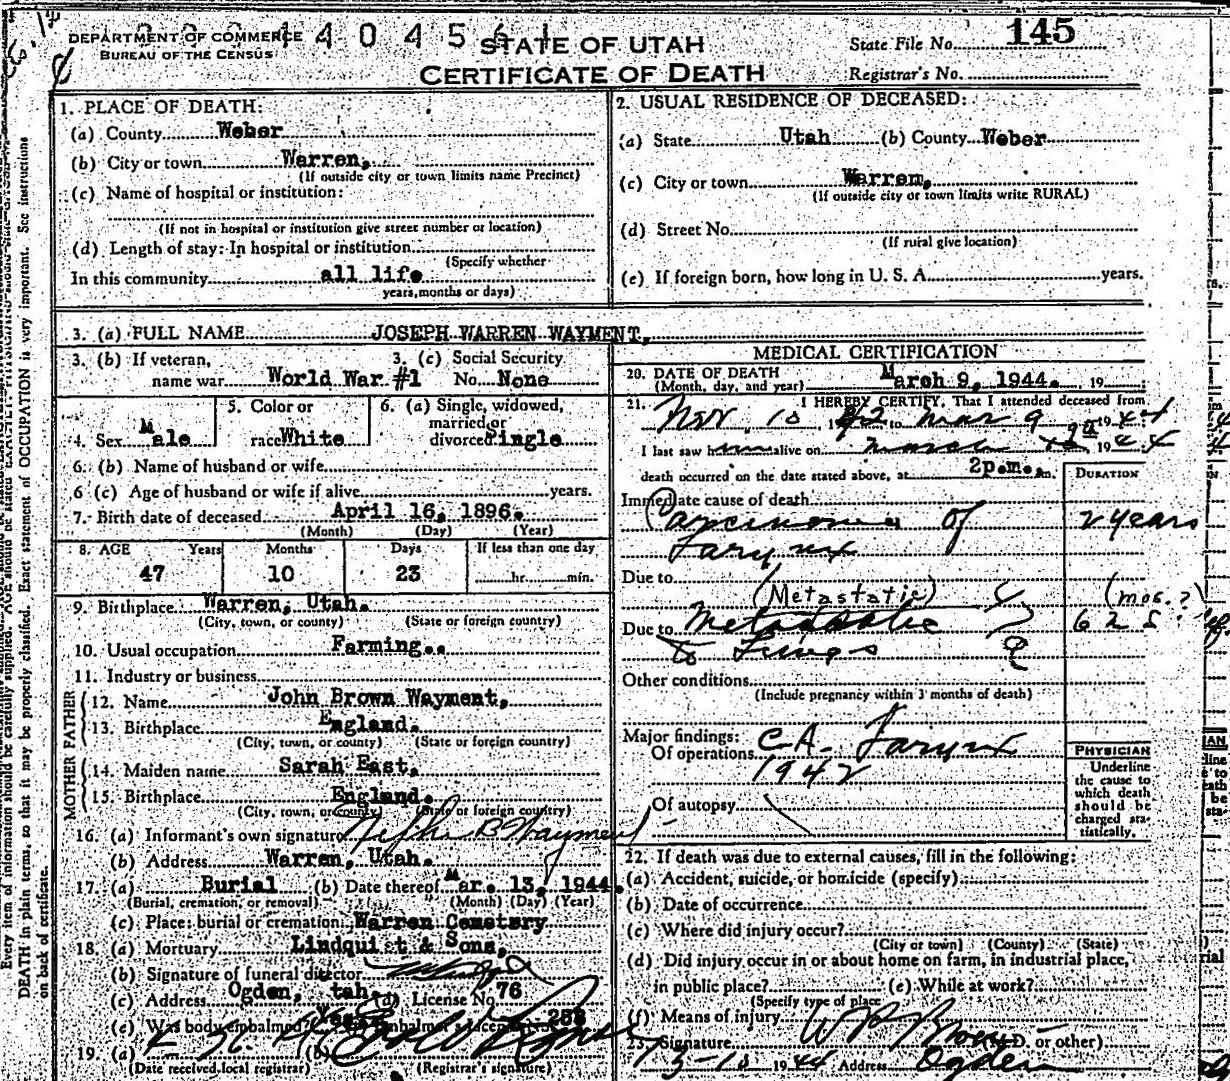 DEPARTMENT OF COMMERCE
BUREAU OF THE CENSUS
STATE OF UTAH
CERTIFICATE OF DEATH
State File No. 145
Registrar's No.
1. PLACE OF DEATH:
(a) County Weber
(b) City or town Warren,
(If outside city or town limits name Precinct)
(c) Name of hospital or institution:
(If not in hospital or institution give street number or location)
(d) Length of stay: In hospital or institution
(Specify whether
In this community all life
years, months or days)
2. USUAL RESIDENCE OF DECEASED:
(a) State Utah (b) County Weber
(c) City or town Warren,
(If outside city or town limits write RURAL)
(d) Street No.
(If rural give location)
(e) If foreign born, how long in U. S. A. years.
3. (a) FULL NAME JOSEPH WARREN WAYMENT,
3. (b) If veteran, name war World War #1
3. (c) Social Security No. None
4. Sex Male
5. Color or race White
6. (a) Single, widowed, married, or divorced Single
6. (b) Name of husband or wife
6 (c) Age of husband or wife if alive years.
7. Birth date of deceased April 16, 1896.
(Month) (Day) (Year)
8. AGE Years Months Days If less than one day
47 10 23 hr. min.
9. Birthplace Warren, Utah.
(City, town, or county) (State or foreign country)
10. Usual occupation Farming..
11. Industry or business
FATHER
12. Name John Brown Wayment,
13. Birthplace England.
(City, town, or county) (State or foreign country)
MOTHER
14. Maiden name Sarah East,
15. Birthplace England.
(City, town, or county) (State or foreign country)
16. (a) Informant's own signature B Wayment
(b) Address Warren, Utah.
17. (a) Burial (b) Date thereof Mar. 13, 1944.
(Burial, cremation, or removal) (Month) (Day) (Year)
(c) Place: burial or cremation Warren Cemetery
18. (a) Mortuary Lindquist & Sons,
(b) Signature of funeral director
(c) Address Ogden, tah. (d) License No. 76
(e) Was body embalmed? Yes
19. (a) (b)
(Date received local registrar) (Registrar's signature)
MEDICAL CERTIFICATION
20. DATE OF DEATH
(Month, day, and year) March 9, 1944. , 19
21. I HEREBY CERTIFY, That I attended deceased from
Nov. 10 1942 to Mar 9 1944
I last saw him alive on March 9th 1944
death occurred on the date stated above, at 2p.m. m.
DURATION
Immediate cause of death
Carcinoma of 2 years
Larynx
Due to (Metastatic) (mos.?)
Due to Metastatic
to Lungs
Other conditions
(Include pregnancy within 3 months of death)
Major findings:
Of operations C.A. Larynx
1942
Of autopsy
PHYSICIAN
Underline
the cause to
which death
should be
charged sta-
tistically.
22. If death was due to external causes, fill in the following:
(a) Accident, suicide, or homicide (specify)
(b) Date of occurrence
(c) Where did injury occur?
(City or town) (County) (State)
(d) Did injury occur in or about home on farm, in industrial place,
in public place? (e) While at work?
(Specify type of place
(f) Means of injury
23. Signature (M.D. or other)
3-10 1944 Address Ogden
Every item of information should be carefully supplied.
DEATH in plain terms, so that it may be properly classified. Exact statement of OCCUPATION is very important. See instructions
on back of certificate.